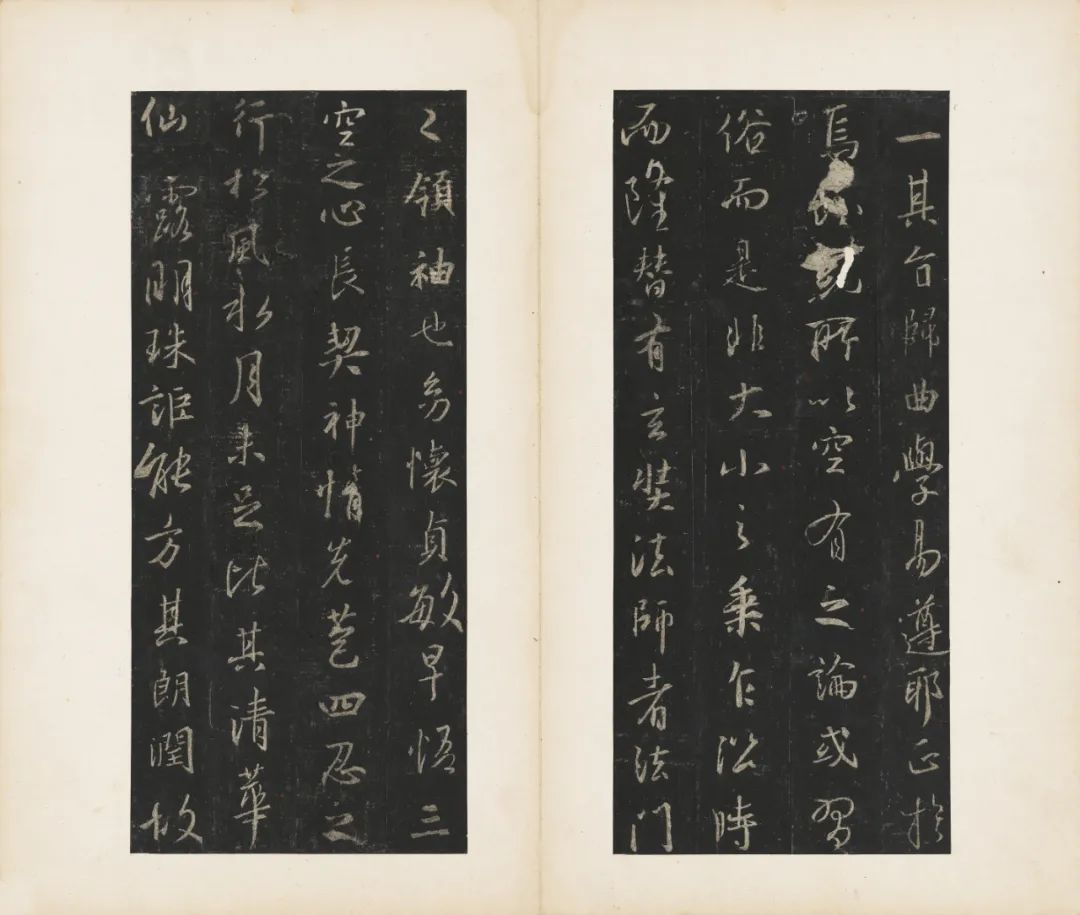 一其旨歸曲學易遵耶正於
焉所以空有之論或習
俗而是非大小之乘乍沿時
而隆替有玄奘法師者法門
之領袖也幼懷貞敏早悟三
空之心長契神情先苞四忍之
行松風水月未足比其清華
仙露明珠詎能方其朗潤故